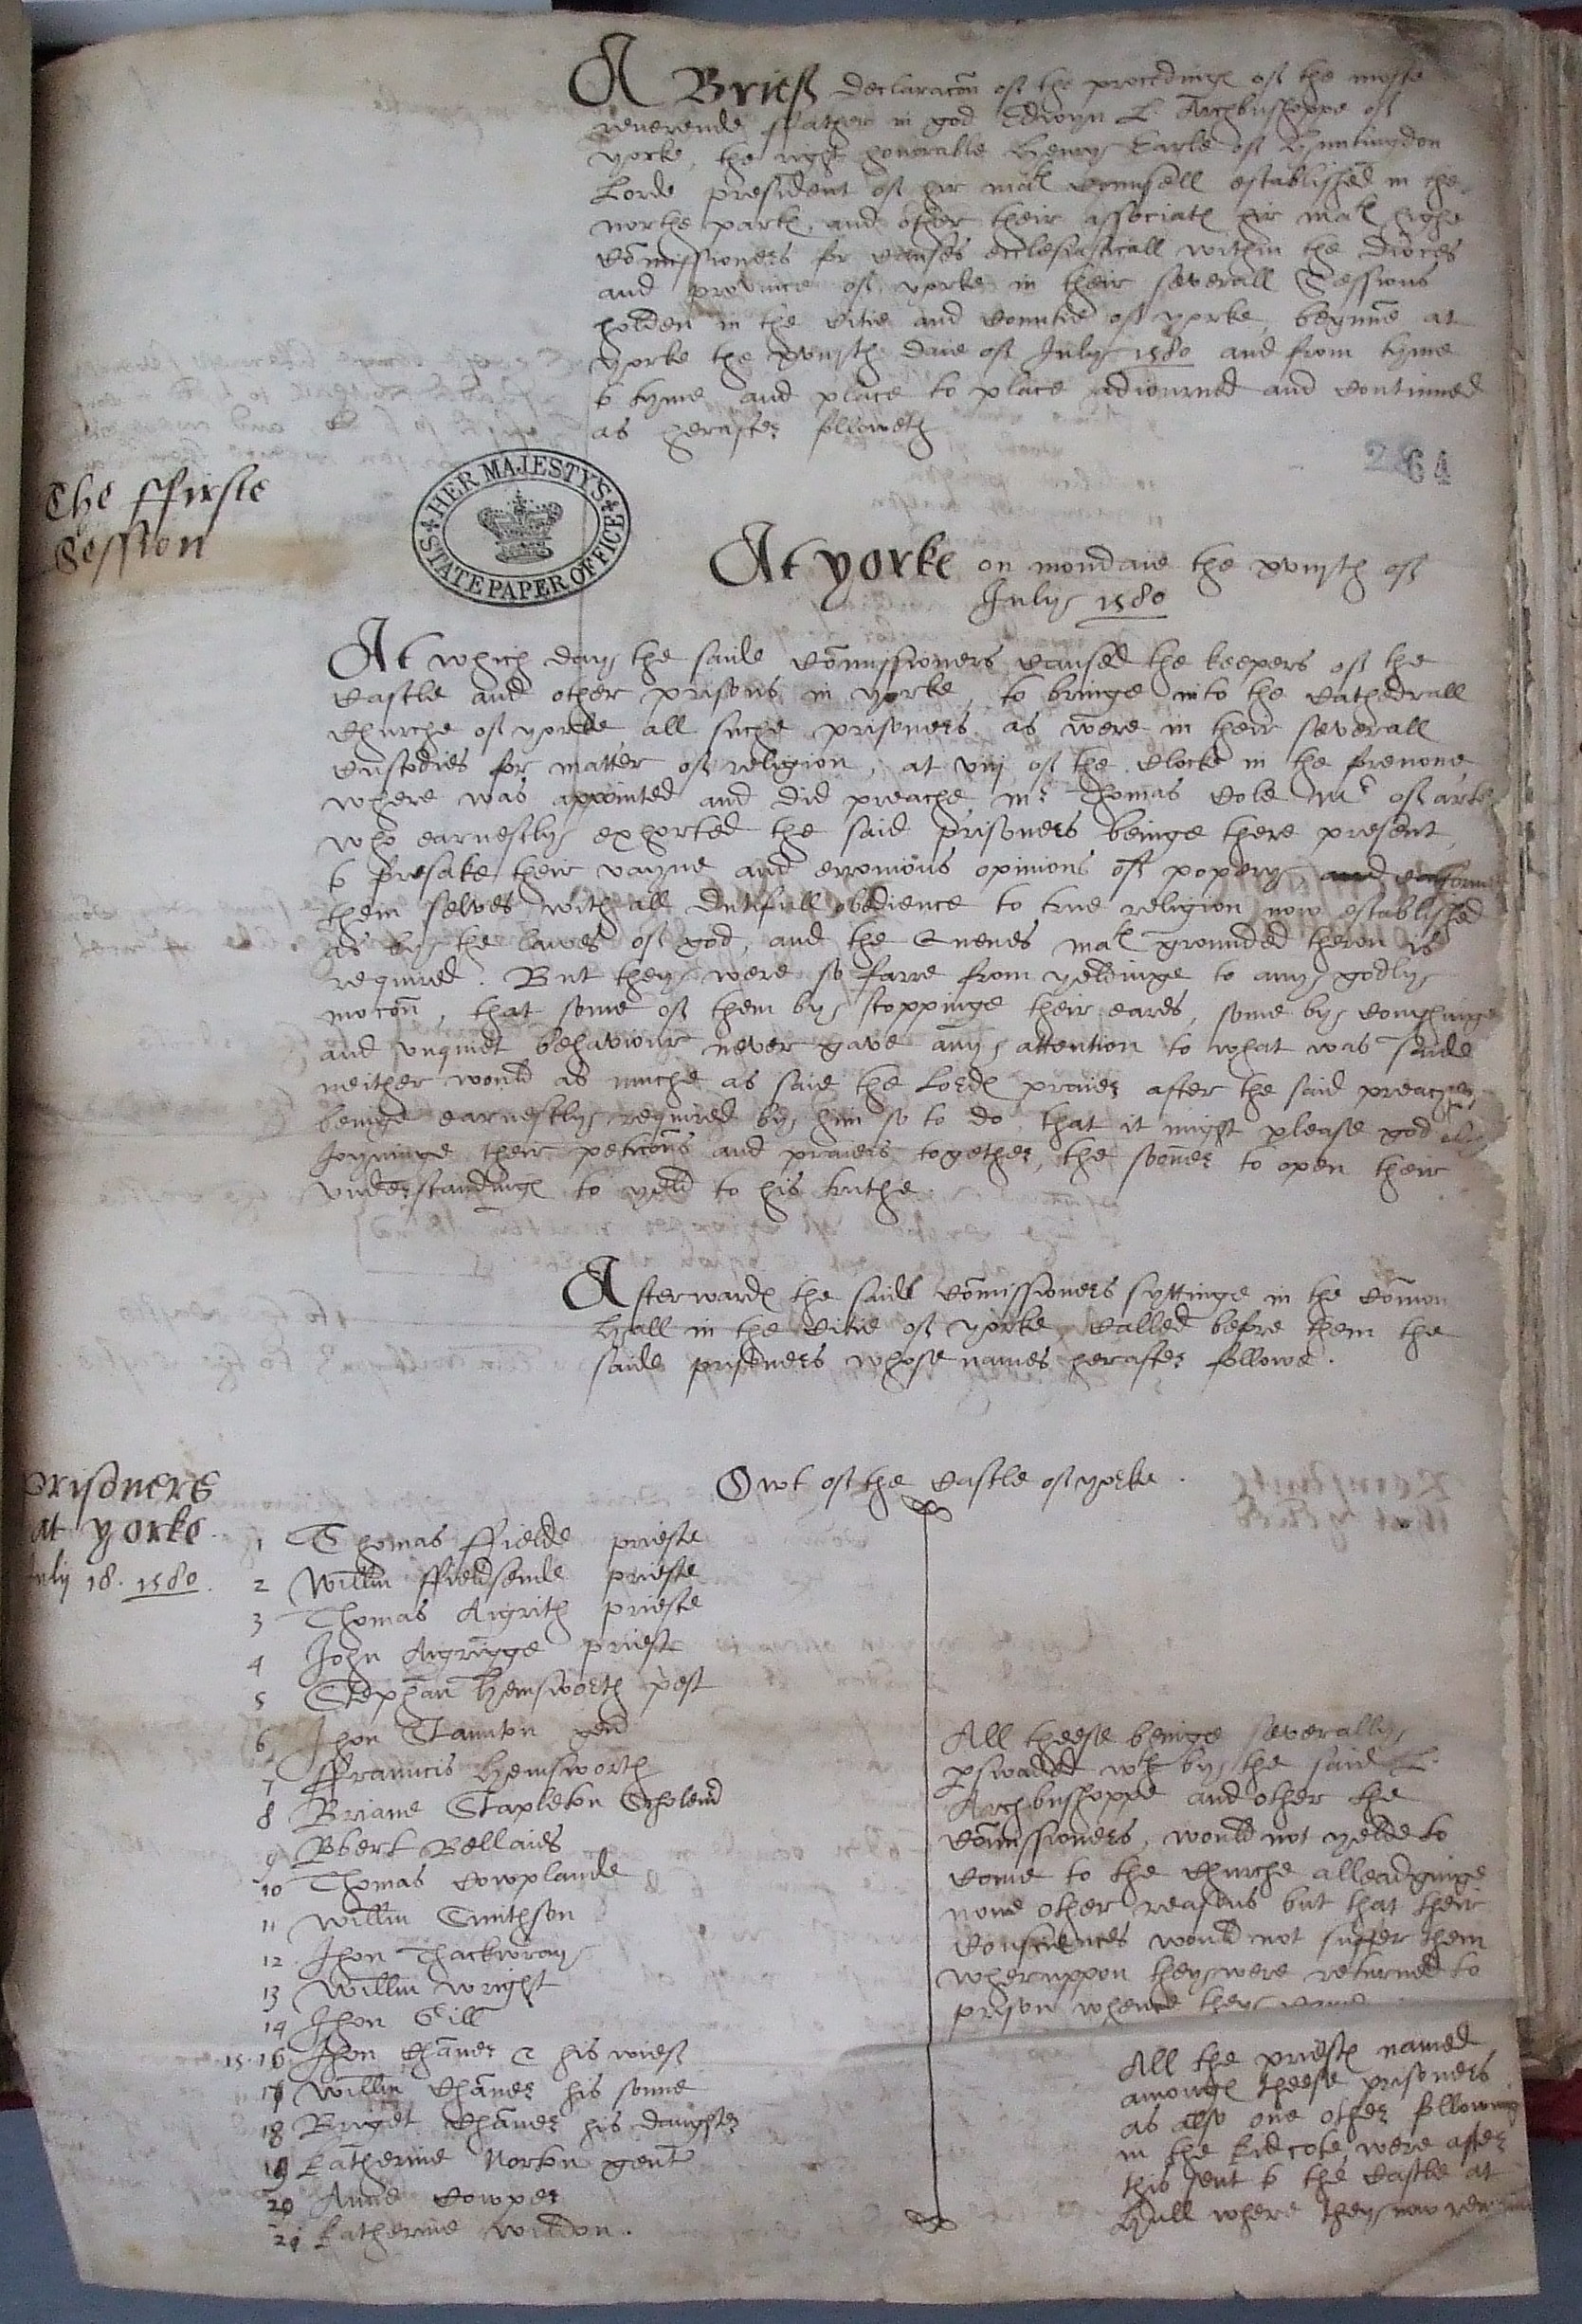 A Brief declaracon of the procedinges of the moste
reverende ffather in god Edwyn L. Archbusshoppe of
yorke, the right honorable Henry Earle of Huntingdon
Lorde president of hir mates Counsell established in the
northe partes, and other their associates hir mates highe
Comissioners for causes ecclesiasticall within the dioces
and province of yorke in their severall Sessions
holden in the citie and countie of yorke, begunne at
yorke the xviijth daie of July 1580 and from tyme
to tyme and place to place adiourned and continued
as herafter followeth
264
The ffirste
Session
HER MAJESTY'S STATE PAPER OFFICE
At yorke on mondaie the xviijth of
July 1580
At which day the saide Comissioners caused the keepers of the
Castle and other prisons in yorke, to bringe into the Cathedrall
Churche of yorke all suche prisoners as were in their severall
custodies for matter of religion, at viij of the clocke in the forenone
where was appointed and did preache mr Thomas Cole Mr of artes
who earnestly exhorted the said prisoners beinge there present,
to forsake their vayne and erronious opinions of popery and conforme
them selves with all dutifull obedience to true religion now established
as by the lawes of god, and the Quenes mates grounded theron is
required. But they were so farre from yeldinge to any godly
mocon, that some of them by stoppinge their eares, some by coughinge
and unquiet behaviour never gave any attention to what was saide
neither would as muche as saie the Lordes praier after the said preacher
beinge earnestly required by him so to do, that it might please god
Joyninge their peticons and praiers together, the sooner to open their
understandinges to yeld to his truthe
Afterwardes the saide Comissioners syttinge in the Comon
Hall in the citie of yorke, called before them the
saide prisoners whose names herafter followe.
prisoners
at yorke.
July 18. 1580.
Owt of the castle of yorke.
1 Thomas ffielde prieste
2 Willm ffieldsende prieste
3 Thomas Aigrith prieste
4 John Aigrigge prieste
5 Stephan Hemsworth prest
6 Jhon Staunton gen
7 ffrauncis Hemsworth
8 Briane Stapleton Scholem
9 Robert Bellaies
10 Thomas Cowplande
11 Willm Smithson
12 Jhon Thackwray
13 Willm Wright
14 Jhon Gill
15. 16 Jhon Chamer & his wief
17 Willm Chamer his sonne
18 Briget Chamer his daughter
19 Katherine Norton gent
20 Anne Cowper
21 Katherine Wildon.
All theese beinge severally
pswaded wth by the said L.
Archbusshoppe and other the
Comissioners, would not yelde to
come to the Churche alleadginge
none other reasons but that their
consciences would not suffer them
wheruppon they were returned to
prison whence they came
All the priestes named
amonges theese prisoners
as also one other following
in the Kidcote, were after
this sent to the Castle at
Hull where they now remaine